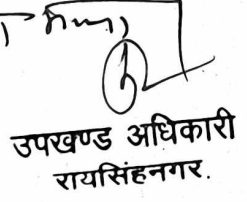 उपखण्ड अधिकारी
रायसिंहनगर.